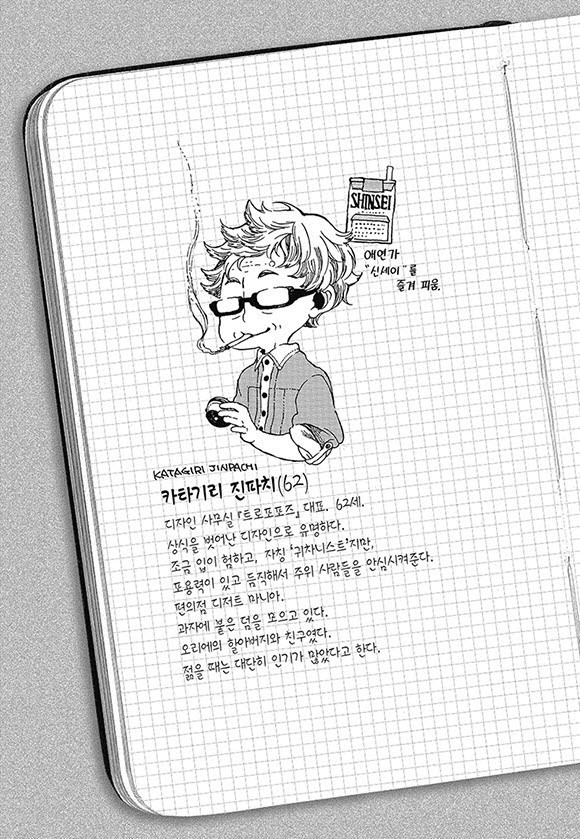 SHINSEI
애연가
"신세이"를
즐겨 피움.
KATAGIRI JINPACHI
카타기리 진파치(62)
디자인 사무실 『트로포포즈』 대표. 62세.
상식을 벗어난 디자인으로 유명하다.
조금 입이 험하고, 자칭 '귀차니스트'지만,
포용력이 있고 듬직해서 주위 사람들을 안심시켜준다.
편의점 디저트 마니아.
과자에 붙은 덤을 모으고 있다.
오리에의 할아버지와 친구였다.
젊을 때는 대단히 인기가 많았다고 한다.